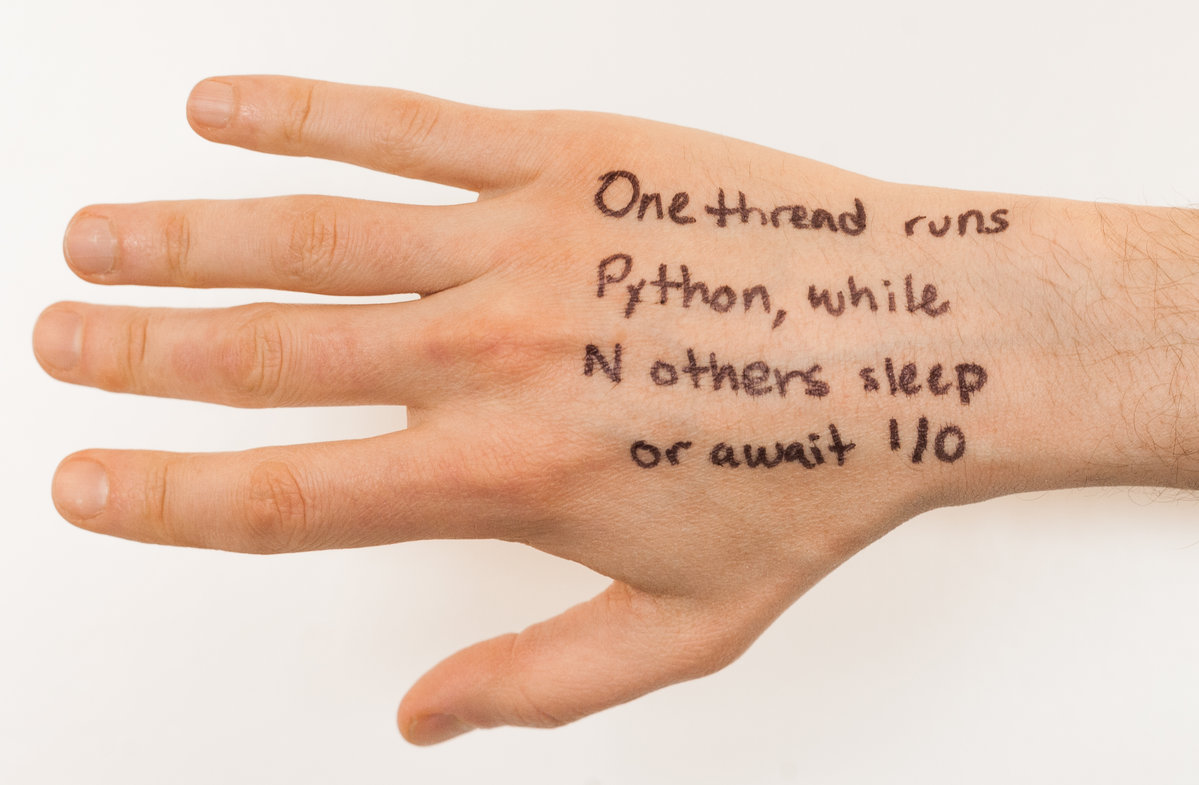 One thread runs
Python, while
N others sleep
or await I/O